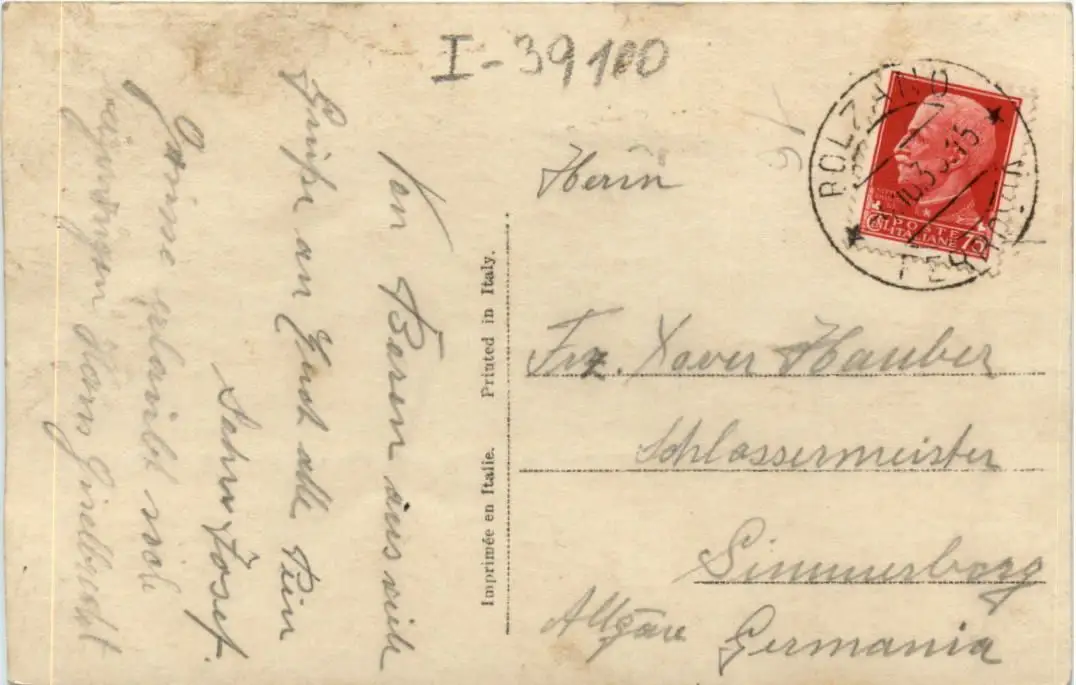 I-39100
Von Bozen aus viele
Grüße an Euch alle Dein
Sohn Josef.
Grüsse erlaubt sich
Hans Giselbrecht
Imprimée en Italie. Printed in Italy.
BOLZANO
FERROVIA
POSTE
ITALIANE 75
Herrn
Frz. Xaver Hauber
Schlossermeister
Simmerberg
Allgäu Germania